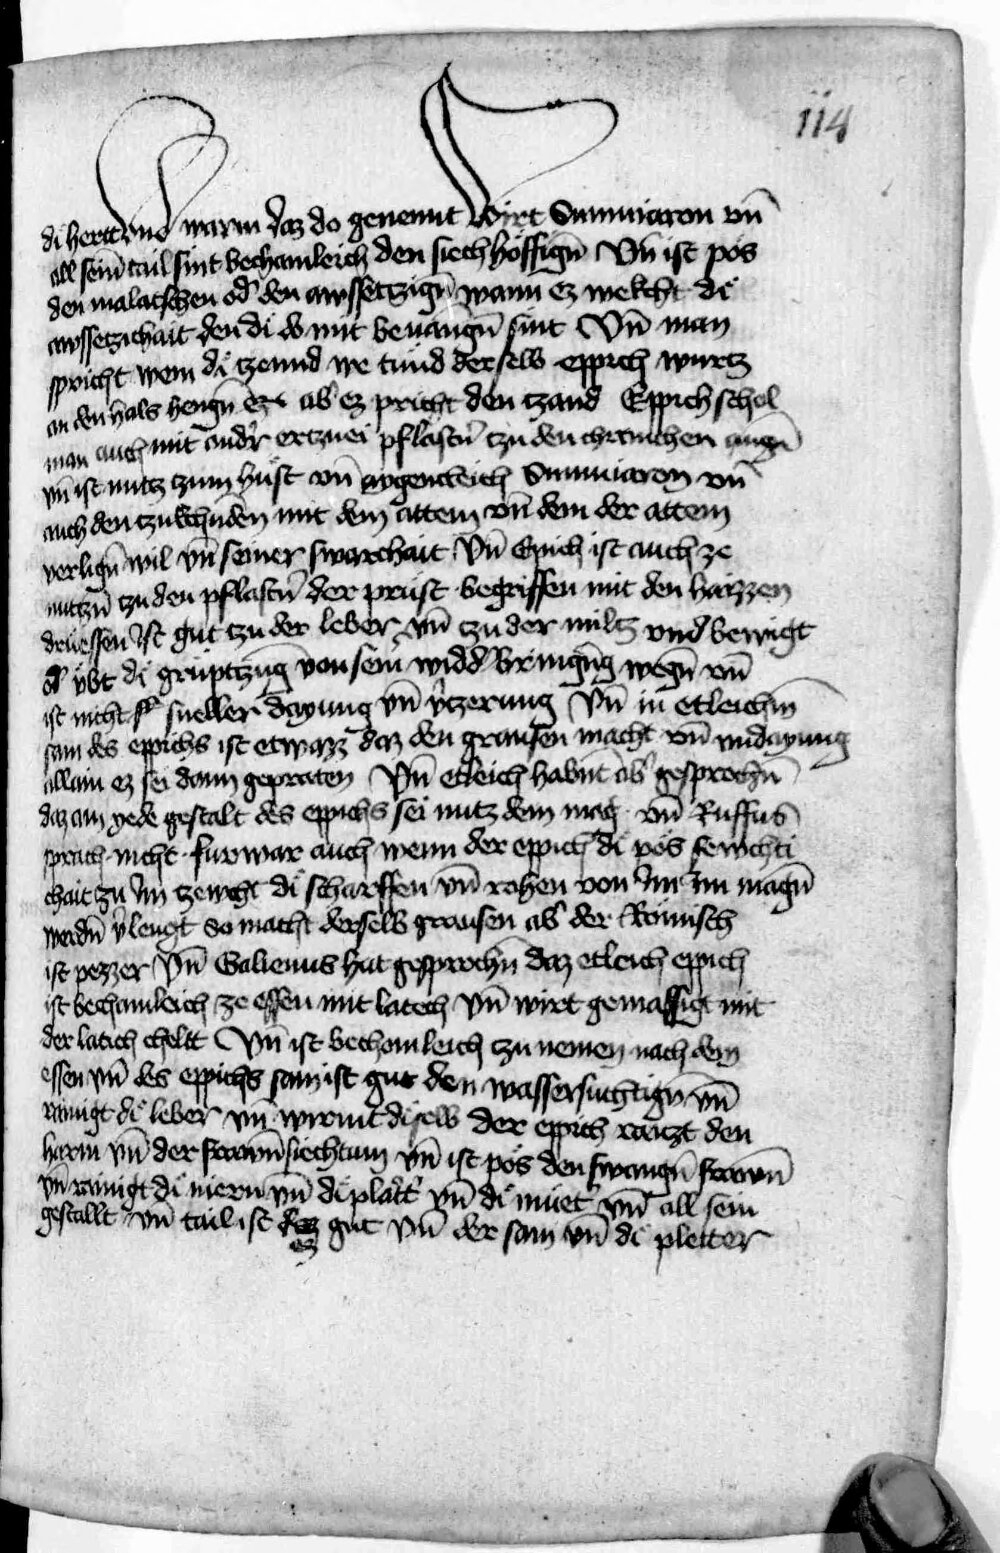 114
di hertt vnd warm daz do genennt wirt Smuniaron vn̄
all sein̄ tail sint bechamleich den siech höffign̄ Vn̄ ist pös
den malatschen od' den awssetzign̄ wann ez wekcht di
awssetzichait den di do mit beuangn̄ sint Vn̄ man
spricht wem di tzennd we tund derselb eppich wurtz
an den hals hengn̄ ez ab' ez pricht den tzand Eppich schol
man auch mit and'r ertznei pflast'n tzu den chranchen augn̄
vn̄ ist nutz zum hůst vn̄ aygenleich Smuniaron vn̄
auch den tzu den mit dem attem vn̄ dem der attem
verlign̄ wil vn̄ seiner swarchait Vn̄ Epich ist auch ze
nutzn̄ tzu den pflast'n der prüst begriffen mit den haizzen
drüessen Ist gut tzu der leber vn̄ tzu der miltz vnd bewigt
od' übt di grüptzūg von sein' widd' bringūg wegn̄ vn̄
ist nicht sneller dayung vn̄ v'tzerung Vn̄ in etleichm̄
sam des eppichs ist etwazz daz den grausen macht vn̄ vndayung
allain ez sei dann gepraten Vn̄ etleich habnt ab' gesprochn̄
daz ain yede gestalt des eppichs sei nutz dem mag vn̄ Ruffus
sprach nicht furwar auch wenn der eppich di pös fewchti
chait zu im zewcht di scharffen vn̄ rohen von im im magn̄
werdn̄ v'lengt so macht derselb grausen ab' der Römisch
ist pezzer Vn̄ Galienus hat gesprochn̄ daz etleich eppich
ist bechamleich ze essen mit latech vn̄ wirt gemassigt mit
der latich chelt Vn̄ ist bechomleich tzu nemen nach dem
essen vn̄ des eppichs sam ist gut den wassersuchtign̄ vn̄
rainigt di leber vn̄ wirmt diselb der eppich raitzt den
harm vn̄ der frawn̄ siechtum vn̄ ist pös den swangn̄ frawn̄
vn̄ rainigt di niern vn̄ di plat't' vn̄ di müet' vn̄ all sein
gestallt vn̄ tail ist ez gut vn̄ der sam vn̄ di pletter